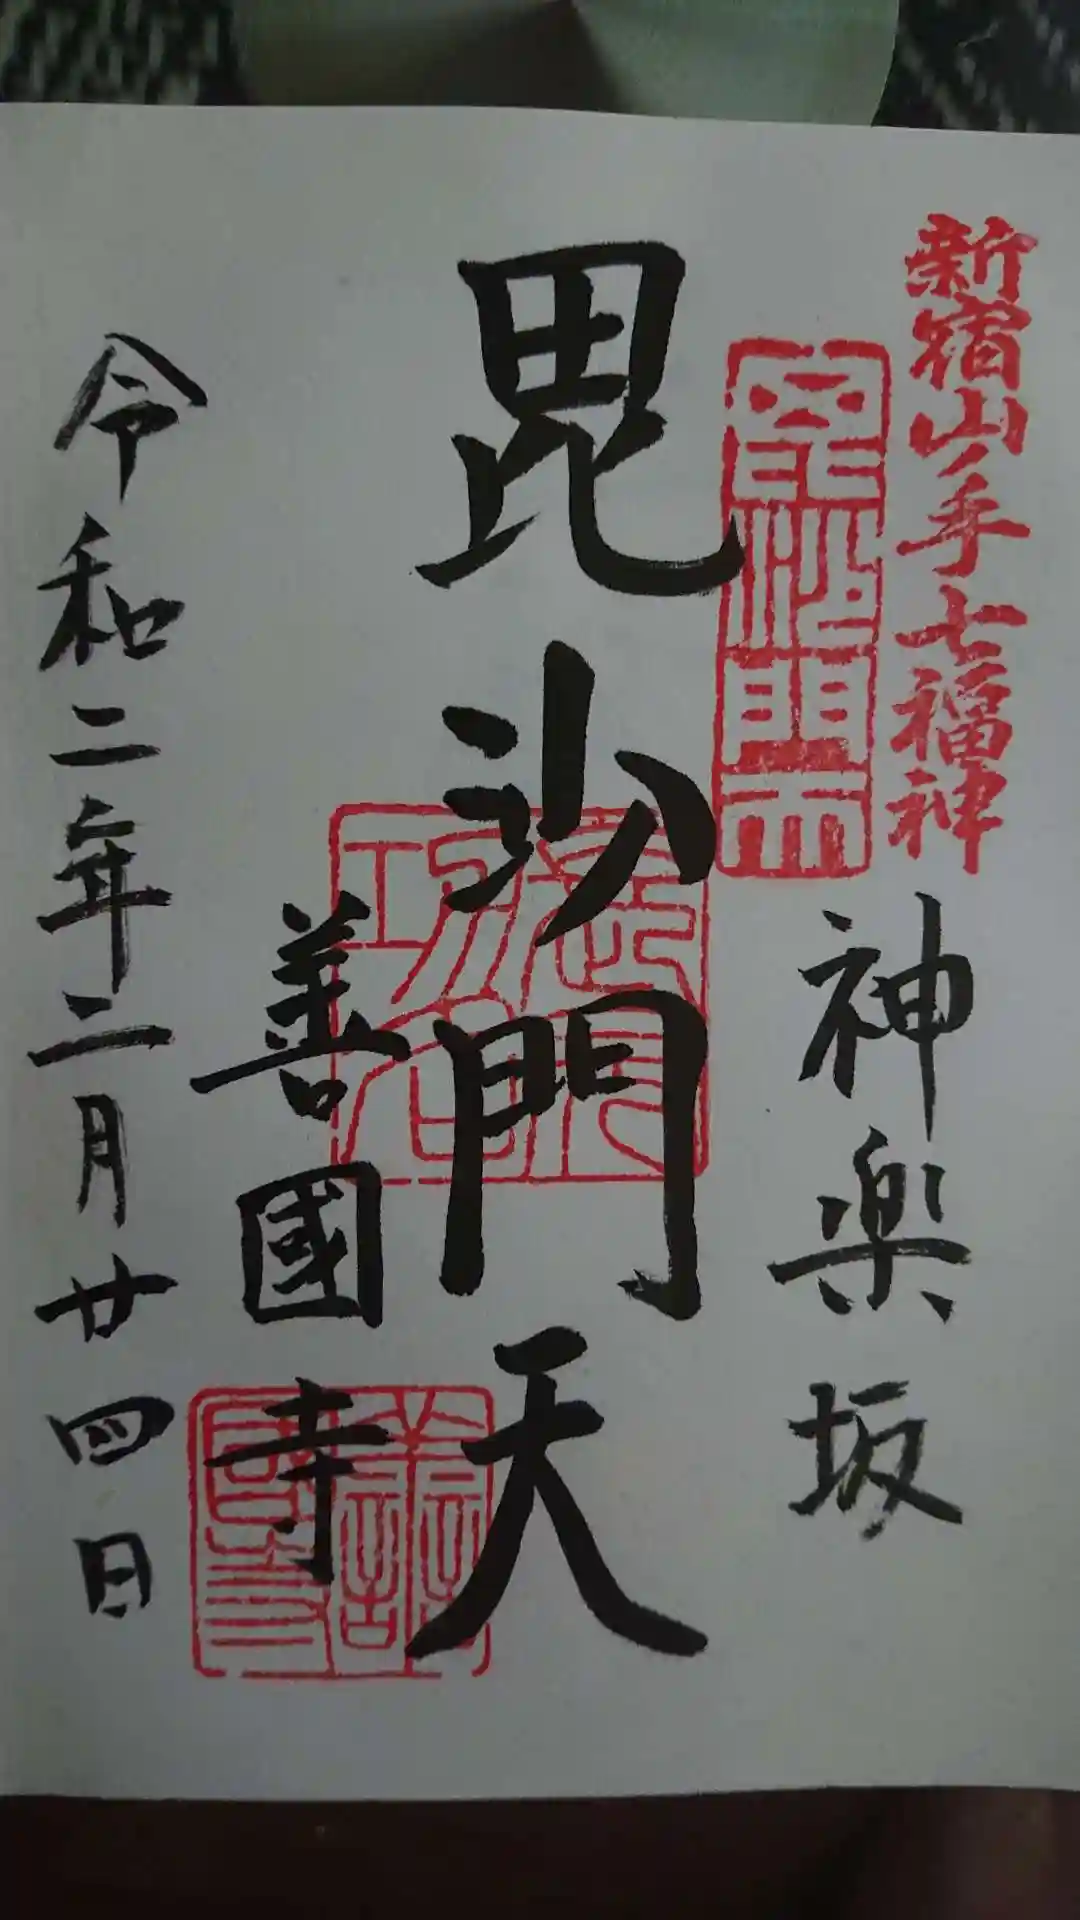 新宿山手七福神
神楽坂
毘沙門天
毘沙門天
善國寺
令和二年二月廿四日